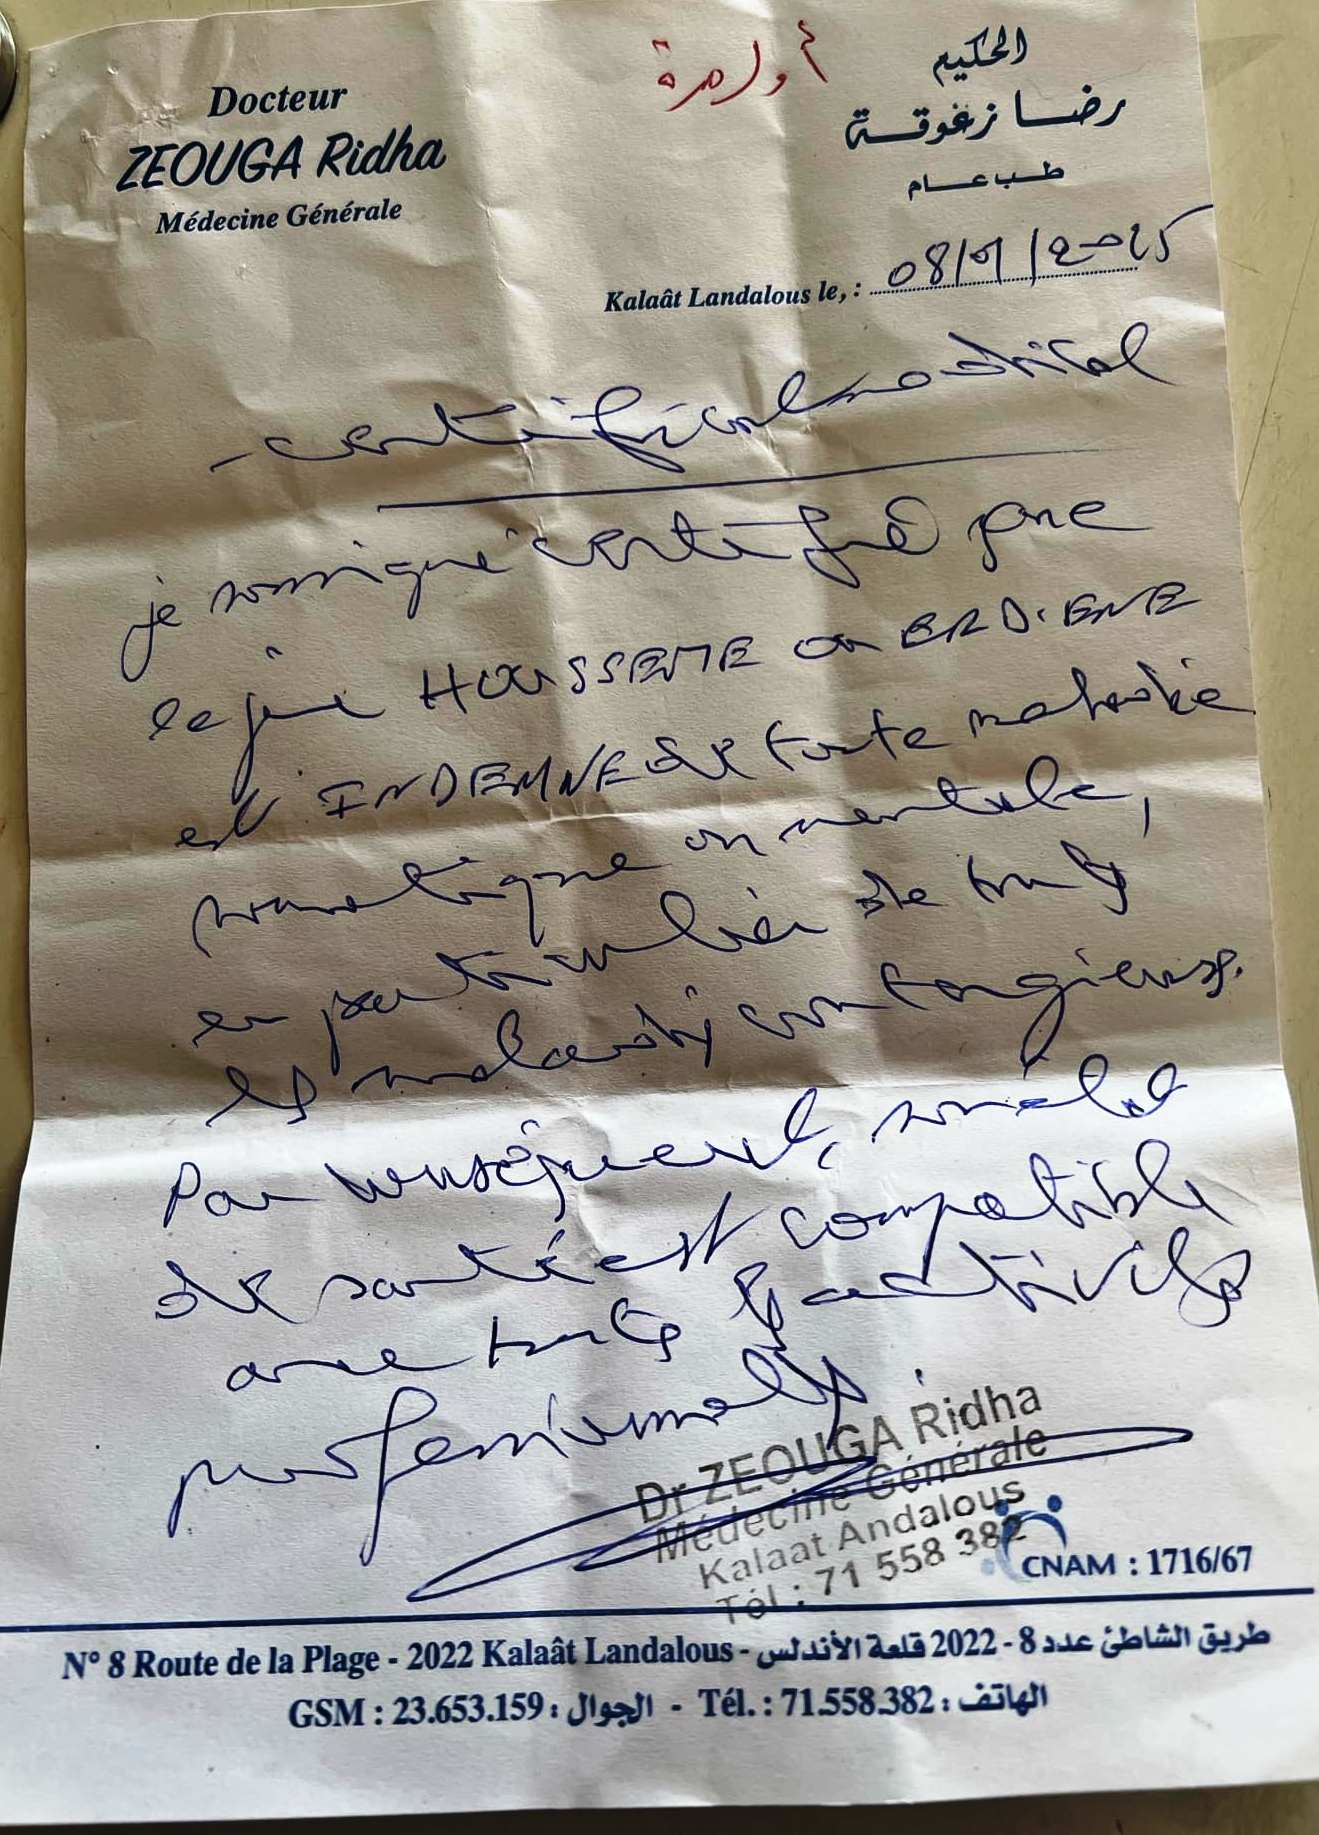 Docteur
ZEOUGA Ridha
Médecine Générale
أول مرة
الحكيم
رضا زغوقة
طب عام
Kalaât Landalous le, : 08/01/2025
- certificat médical
je soussigné certifié que
le jeune HOUSSEME
est INDEMNE de toute maladie
somatique ou mentale,
en particulier de touts
les maladies contagieuses.
Par conséquent, son état
de santé est compatible
avec touts les activités
professionnelles.
Dr ZEOUGA Ridha
Médecine Générale
Kalaat Andalous
Tél : 71 558 382
CNAM : 1716/67
N° 8 Route de la Plage - 2022 Kalaât Landalous - طريق الشاطئ عدد 8 - 2022 قلعة الأندلس
GSM : 23.653.159 : الجوال - Tél. : 71.558.382 : الهاتف